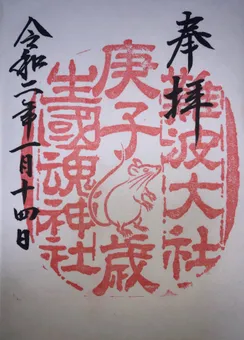 奉拝
難波大社
庚子歳
生國魂神社
令和二年一月十四日